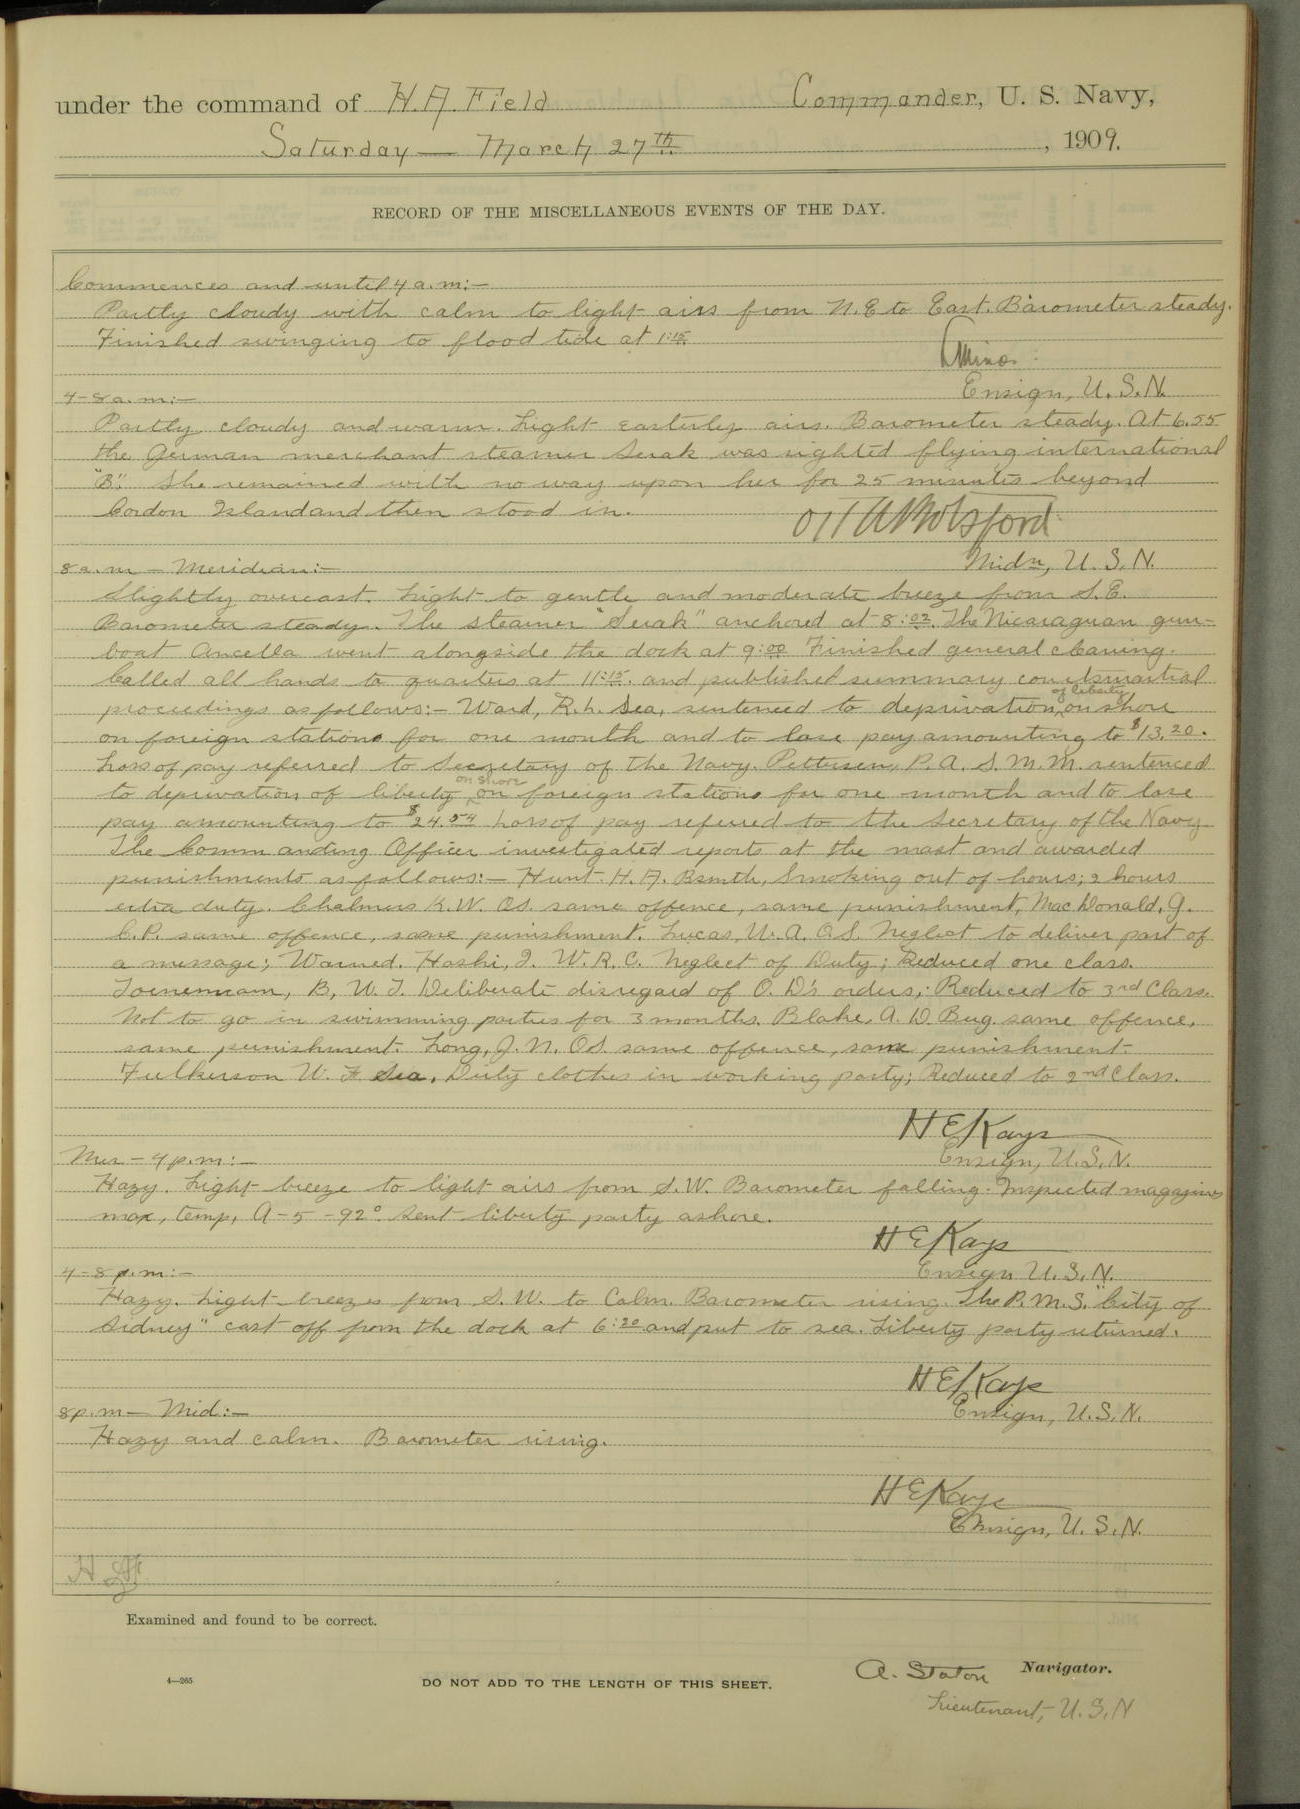 under the command of H. A. Field Commander, U. S. Navy,
Saturday — March 27th, 1909.
RECORD OF THE MISCELLANEOUS EVENTS OF THE DAY.
Commences and until 4 a.m:—
Partly cloudy with calm to light airs from N.E to East. Barometer steady.
Finished swinging to flood tide at 1:15.
Ensign, U. S. N.
4-8 a.m:—
Partly cloudy and warm. Light easterly airs. Barometer steady. At 6.55
the German merchant steamer Serak was sighted flying international
"B". She remained with no way upon her for 25 minutes beyond
Cordon Island and then stood in.
Midn, U. S. N.
8 a.m — Meridian:—
Slightly overcast. Light to gentle and moderate breeze from S.E.
Barometer steady. The steamer "Serak" anchored at 8:02. The Nicaraguan gun-
boat Ancella went alongside the dock at 9:00 Finished general cleaning.
Called all hands to quarters at 11:15. and published summary courtsmartial
proceedings as follows:— Ward, R. L. Sea, sentenced to deprivation of liberty on shore
on foreign station for one month and to lose pay amounting to $13.20.
Loss of pay referred to Secretary of the Navy. Pettersen, P. A. S. M. M. sentenced
to deprivation of liberty on shore on foreign station for one month and to lose
pay amounting to $24.54 Loss of pay referred to the Secretary of the Navy
The Commanding Officer investigated reports at the mast and awarded
punishments as follows:— Hunt. H. A. Bsmth, Smoking out of hours; 2 hours
extra duty. Chalmers K. W. OS. same offence, same punishment, Mac Donald, J.
C. P. same offence, same punishment. Lucas, W. A. O. S. Neglect to deliver part of
a message; Warned. Hoshi, I. W. R. C. Neglect of Duty; Reduced one class.
B, W. T. Deliberate disregard of O. D's orders; Reduced to 3rd Class.
Not to go in swimming parties for 3 months. Blake, A. D. Bug. same offence,
same punishment. Long, J. N. OS. same offence, same punishment.
Fulkerson W. F Sea. Dirty clothes in working party; Reduced to 2nd Class.
H E Kays
Ensign, U. S. N.
Mer — 4 p.m:—
Hazy. Light breeze to light airs from S.W. Barometer falling. Inspected magazines
max, temp, A-5 -92° Sent liberty party ashore.
H E Kays
Ensign U. S. N.
4-8 p.m:—
Hazy. Light breezes from S. W. to Calm. Barometer rising. The P. M. S. "City of
Sidney" cast off from the dock at 6:20 and put to sea. Liberty party returned.
H E Kays
Ensign, U. S. N.
8 p.m — Mid:—
Hazy and calm. Barometer rising.
H E Kays
Ensign, U. S. N.
Examined and found to be correct.
A. Staton Navigator.
4—265
DO NOT ADD TO THE LENGTH OF THIS SHEET.
Lieutenant, U. S. N